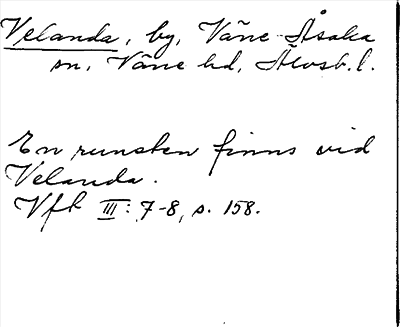 Velanda, by, Väne-Åsaka
sn, Väne hd, Älvsb. l.
En runsten finns vid
Velanda.
Vft III: 7-8, s. 158.